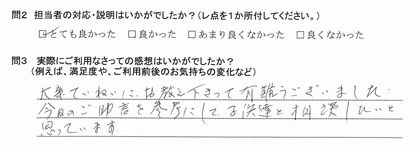 問2 担当者の対応・説明はいかがでしたか?(レ点を1か所付してください。)
☑とても良かった □良かった □あまり良くなかった □良くなかった
問3 実際にご利用なさっての感想はいかがでしたか?
(例えば、満足度や、ご利用前後のお気持ちの変化など)
大変ていねいにお教え下さって有難うございました
今日のご助言を参考にして子供達と相談したいと
思っています